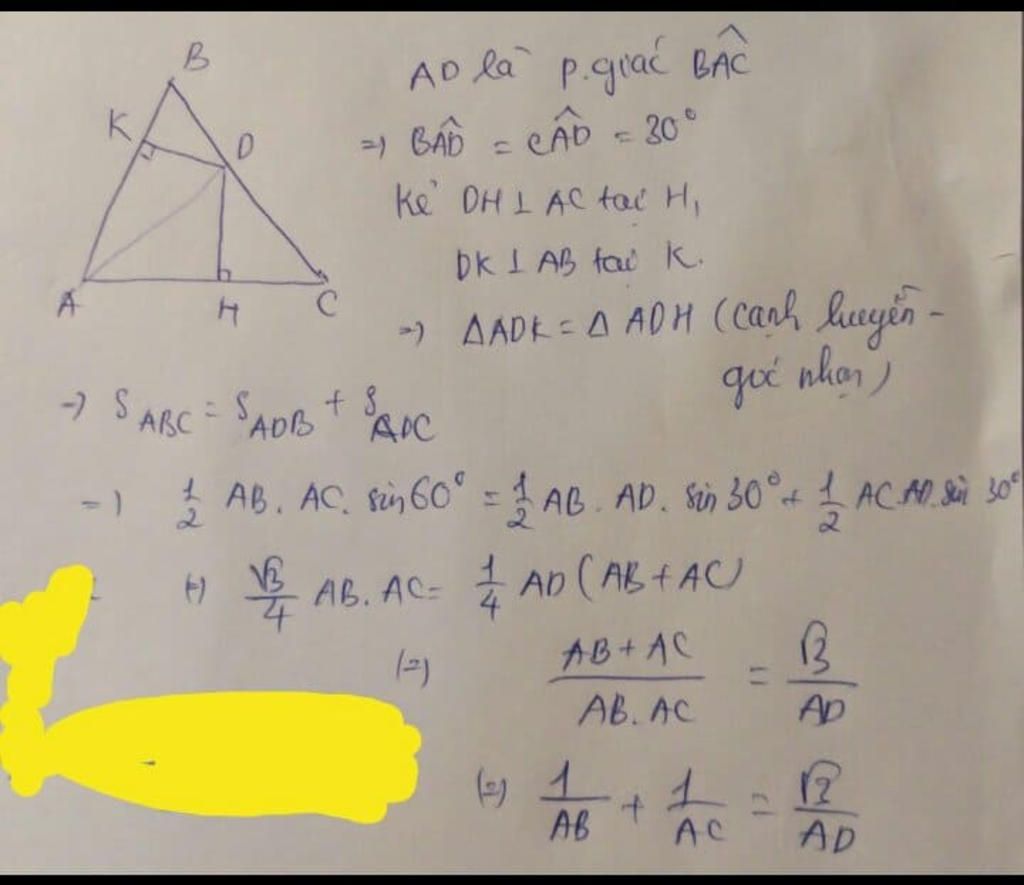 B
K
D
A
H
C
AD là p.giác BAC^
=> BAD^ = CAD^ = 30°
Kẻ DH ⊥ AC tại H,
DK ⊥ AB tại K.
=> ΔADK = Δ ADH (cạnh huyền -
góc nhọn)
=> S ABC = S ADB + S ADC
=> 1/2 AB. AC. sin60° = 1/2 AB. AD. sin 30° + 1/2 AC.AD.sin 30°
(=) √3/4 AB. AC = 1/4 AD (AB + AC)
(=) AB + AC / AB. AC = √3 / AD
(=) 1/AB + 1/AC = √3/AD